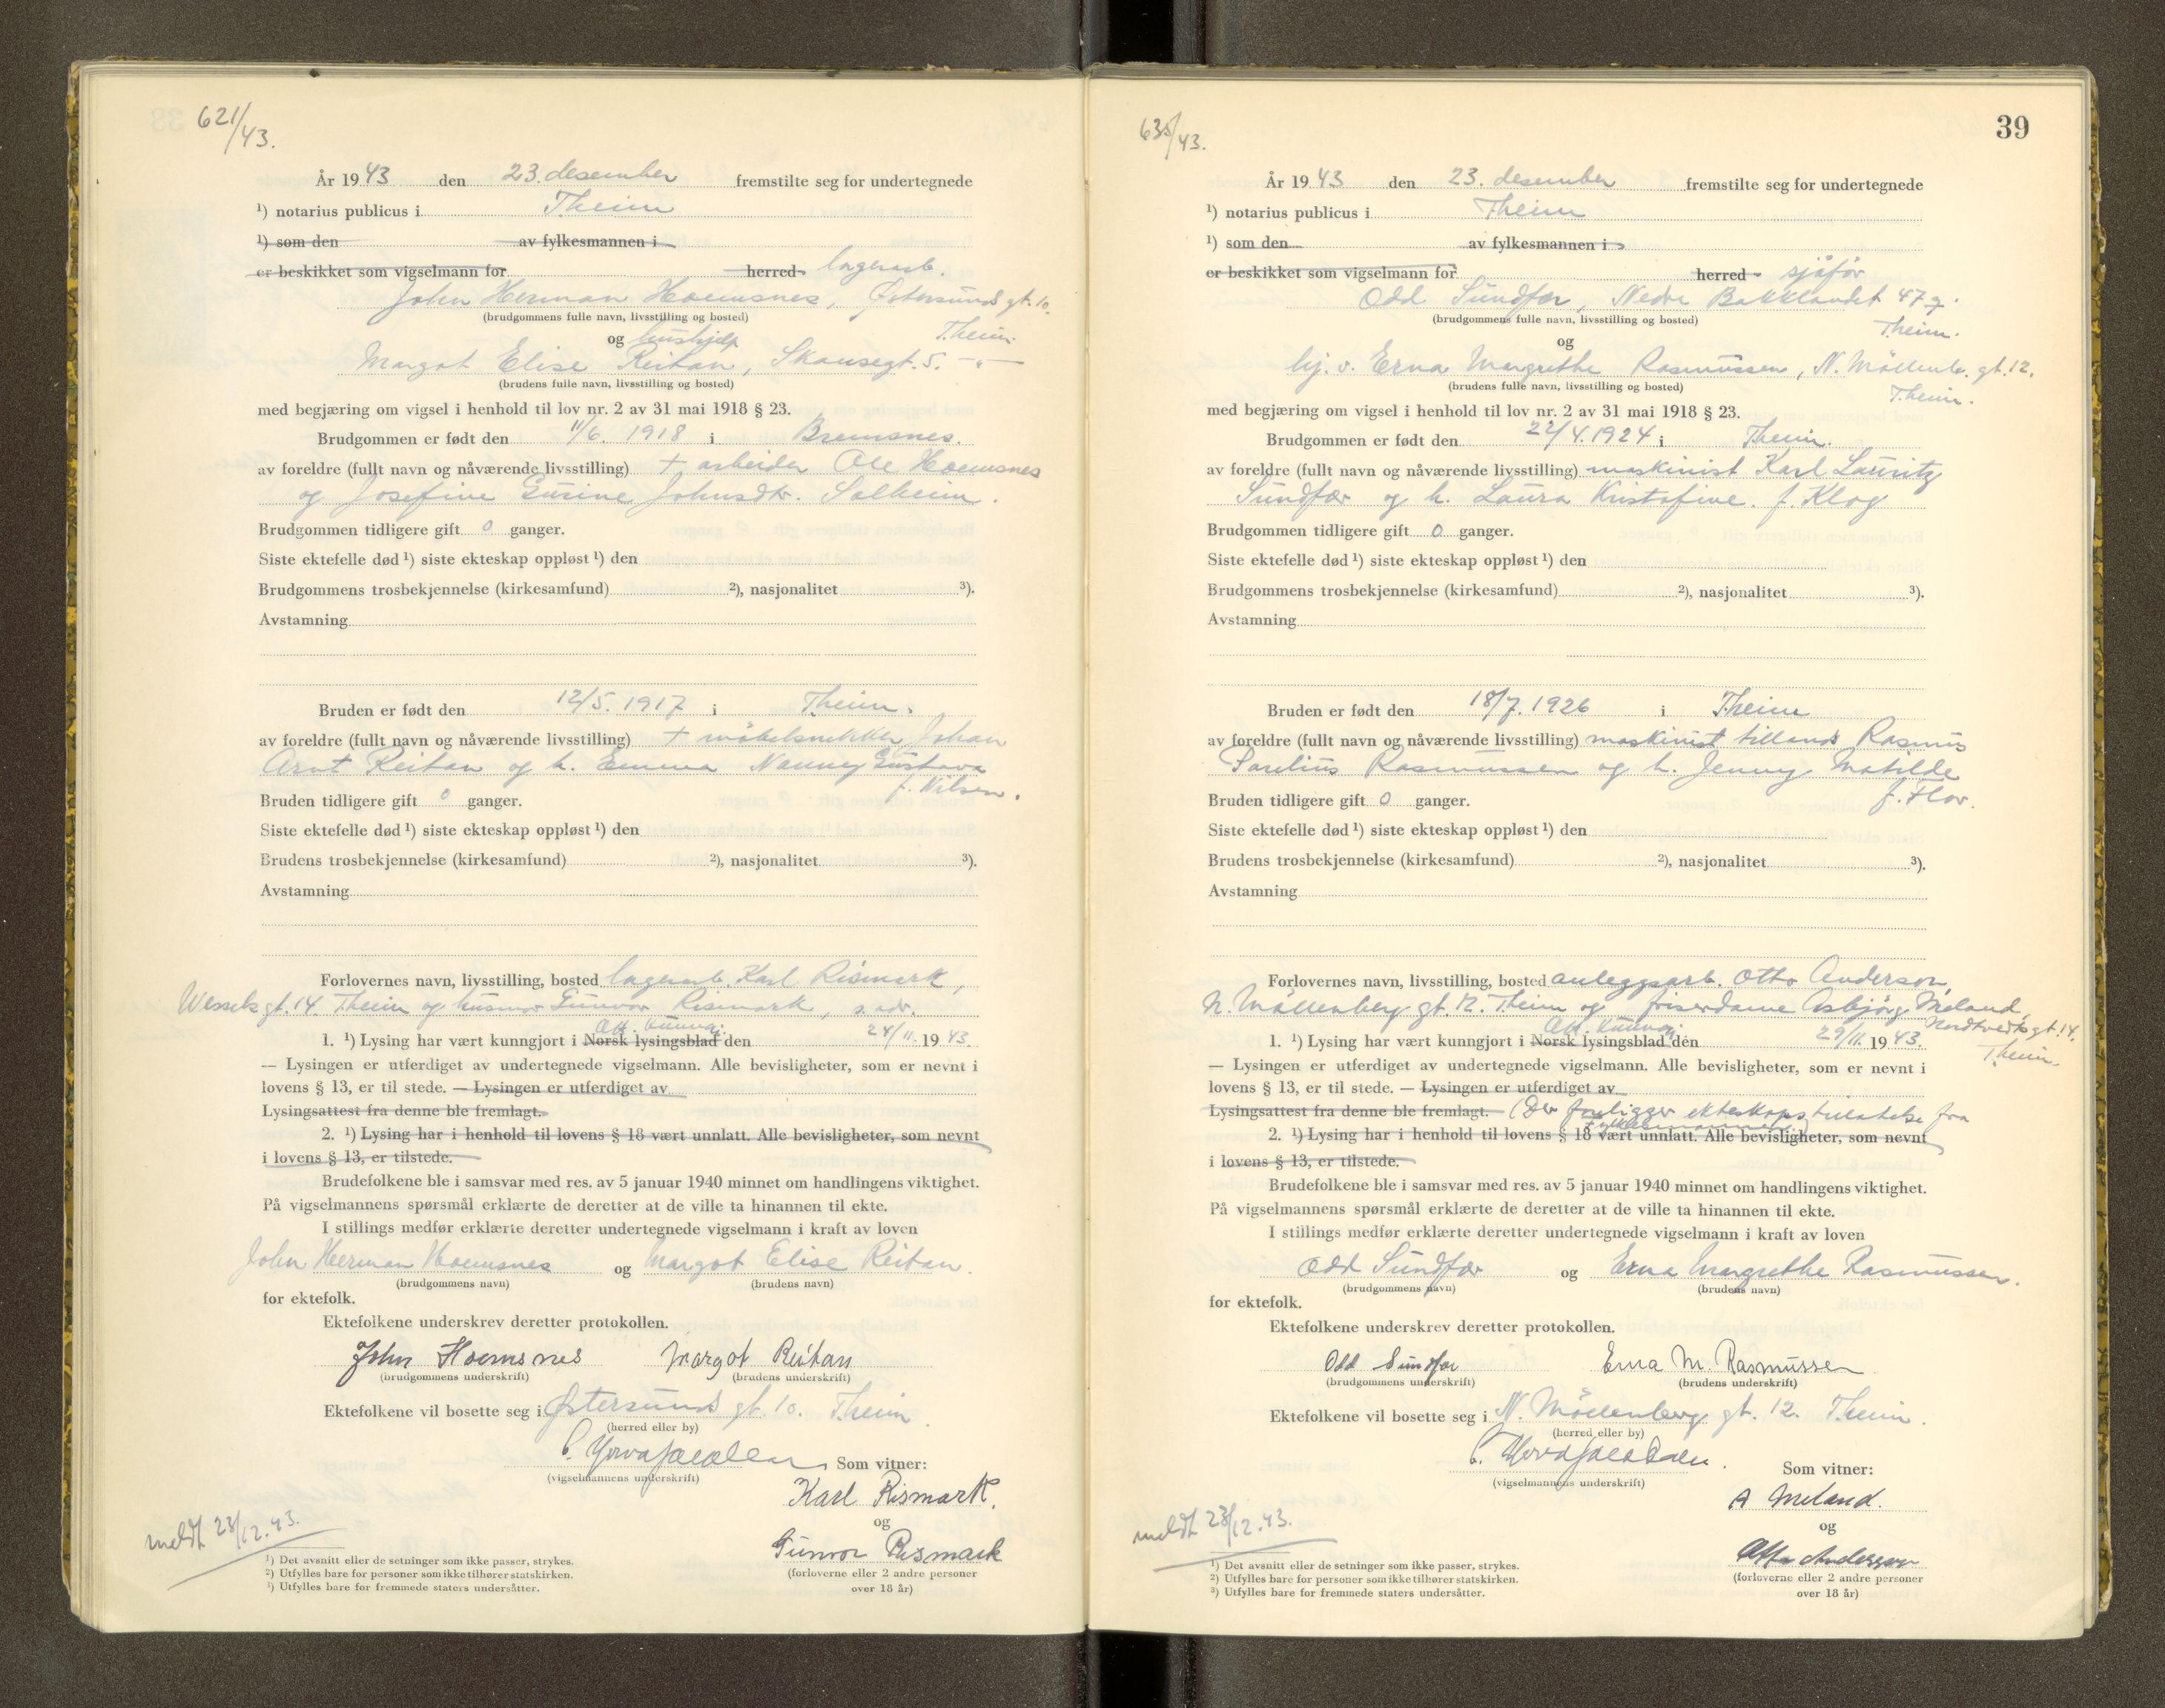 621/43.
År 1943 den 23. desember fremstilte seg for undertegnede
¹) notarius publicus i Theim
¹) som den av fylkesmannen i
er beskikket som vigselmann for herred lagerarb.
John Herman Hoemsnes, Østersunds gt. 10.
(brudgommens fulle navn, livsstilling og bosted) Theim.
og hushjelp
Margot Elise Reitan, Skansegt. 5. - " -
(brudens fulle navn, livsstilling og bosted)
med begjæring om vigsel i henhold til lov nr. 2 av 31 mai 1918 § 23.
Brudgommen er født den 11/6. 1918 i Bremsnes.
av foreldre (fullt navn og nåværende livsstilling) + arbeider Ole Hoemsnes
og Josefine Gurine Johnsdtr. Solheim.
Brudgommen tidligere gift 0 ganger.
Siste ektefelle død ¹) siste ekteskap oppløst ¹) den
Brudgommens trosbekjennelse (kirkesamfund) ²), nasjonalitet ³).
Avstamning
Bruden er født den 12/5. 1917 i Theim.
av foreldre (fullt navn og nåværende livsstilling) + møbelsnekker Johan
Arnt Reitan og h. Emma Nanny Gustava
f. Nilsen.
Bruden tidligere gift 0 ganger.
Siste ektefelle død ¹) siste ekteskap oppløst ¹) den
Brudens trosbekjennelse (kirkesamfund) ²), nasjonalitet ³).
Avstamning
Forlovernes navn, livsstilling, bosted lagerarb. Karl Rismark,
Wessels gt. 14 Theim og husmor Gunvor Rismark, s. adr.
Off. kunngj.
1. ¹) Lysing har vært kunngjort i Norsk lysingsblad den 24/11. 1943.
— Lysingen er utferdiget av undertegnede vigselmann. Alle bevisligheter, som er nevnt i
lovens § 13, er til stede. — Lysingen er utferdiget av
Lysingsattest fra denne ble fremlagt.
2. ¹) Lysing har i henhold til lovens § 18 vært unnlatt. Alle bevisligheter, som nevnt
i lovens § 13, er tilstede.
Brudefolkene ble i samsvar med res. av 5 januar 1940 minnet om handlingens viktighet.
På vigselmannens spørsmål erklærte de deretter at de ville ta hinannen til ekte.
I stillings medfør erklærte deretter undertegnede vigselmann i kraft av loven
John Herman Hoemsnes og Margot Elise Reitan.
(brudgommens navn) (brudens navn)
for ektefolk.
Ektefolkene underskrev deretter protokollen.
John Hoemsnes Margot Reitan
(brudgommens underskrift) (brudens underskrift)
Ektefolkene vil bosette seg i Østersunds gt. 10. Theim.
(herred eller by)
(vigselmannens underskrift) Som vitner:
Karl Rismark.
og
Gunvor Rismark
(forloverne eller 2 andre personer
over 18 år)
meldt 23/12.43.
¹) Det avsnitt eller de setninger som ikke passer, strykes.
²) Utfylles bare for personer som ikke tilhører statskirken.
³) Utfylles bare for fremmede staters undersåtter.
39
635/43.
År 1943 den 23. desember fremstilte seg for undertegnede
¹) notarius publicus i Theim
¹) som den av fylkesmannen i
er beskikket som vigselmann for herred sjåfør
Odd Sundfær, Nedre Bakklandet 47 g.
(brudgommens fulle navn, livsstilling og bosted) Theim.
og
hj. v. Erna Margrethe Rasmussen, N. Möllenb. gt. 12.
(brudens fulle navn, livsstilling og bosted) Theim.
med begjæring om vigsel i henhold til lov nr. 2 av 31 mai 1918 § 23.
Brudgommen er født den 22/4. 1924 i Theim.
av foreldre (fullt navn og nåværende livsstilling) maskinist Karl Lauritz
Sundfær og h. Laura Kristofine. f. Klog
Brudgommen tidligere gift 0 ganger.
Siste ektefelle død ¹) siste ekteskap oppløst ¹) den
Brudgommens trosbekjennelse (kirkesamfund) ²), nasjonalitet ³).
Avstamning
Bruden er født den 18/7. 1926 i Theim
av foreldre (fullt navn og nåværende livsstilling) maskinist tillands Rasmus
Rasmussen og h. Jenny Matilde
f. Flor.
Bruden tidligere gift 0 ganger.
Siste ektefelle død ¹) siste ekteskap oppløst ¹) den
Brudens trosbekjennelse (kirkesamfund) ²), nasjonalitet ³).
Avstamning
Forlovernes navn, livsstilling, bosted anleggsarb. Otto Anderson,
N. Möllenberg gt. 12. Theim og friserdame Asbjörg Meland,
Off. kunngj. gt. 14.
1. ¹) Lysing har vært kunngjort i Norsk lysingsblad den 29/11. 1943. Theim.
— Lysingen er utferdiget av undertegnede vigselmann. Alle bevisligheter, som er nevnt i
lovens § 13, er til stede. — Lysingen er utferdiget av
Lysingsattest fra denne ble fremlagt. — (Der foreligger ekteskapstillatelse fra
fylkesmannen.)
2. ¹) Lysing har i henhold til lovens § 18 vært unnlatt. Alle bevisligheter, som nevnt
i lovens § 13, er tilstede.
Brudefolkene ble i samsvar med res. av 5 januar 1940 minnet om handlingens viktighet.
På vigselmannens spørsmål erklærte de deretter at de ville ta hinannen til ekte.
I stillings medfør erklærte deretter undertegnede vigselmann i kraft av loven
Odd Sundfær og Erna Margrethe Rasmussen.
(brudgommens navn) (brudens navn)
for ektefolk.
Ektefolkene underskrev deretter protokollen.
Odd Sundfær Erna M. Rasmussen
(brudgommens underskrift) (brudens underskrift)
Ektefolkene vil bosette seg i N. Möllenberg gt. 12. Theim.
(herred eller by)
(vigselmannens underskrift) Som vitner:
A Meland.
og
Otto Anderson
(forloverne eller 2 andre personer
over 18 år)
meldt 23/12.43.
¹) Det avsnitt eller de setninger som ikke passer, strykes.
²) Utfylles bare for personer som ikke tilhører statskirken.
³) Utfylles bare for fremmede staters undersåtter.